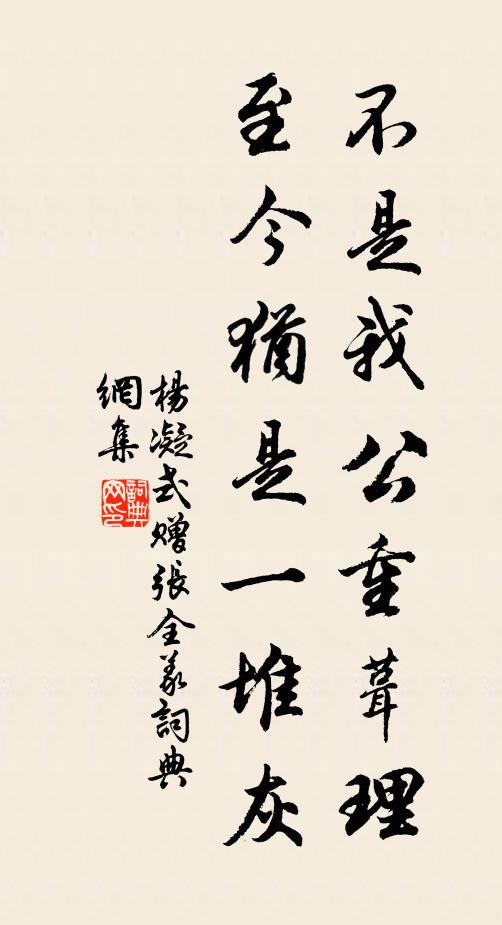 不是我公重葺理
至今猶是一堆灰
楊凝式贈張全義詞典
網集
詞典網印